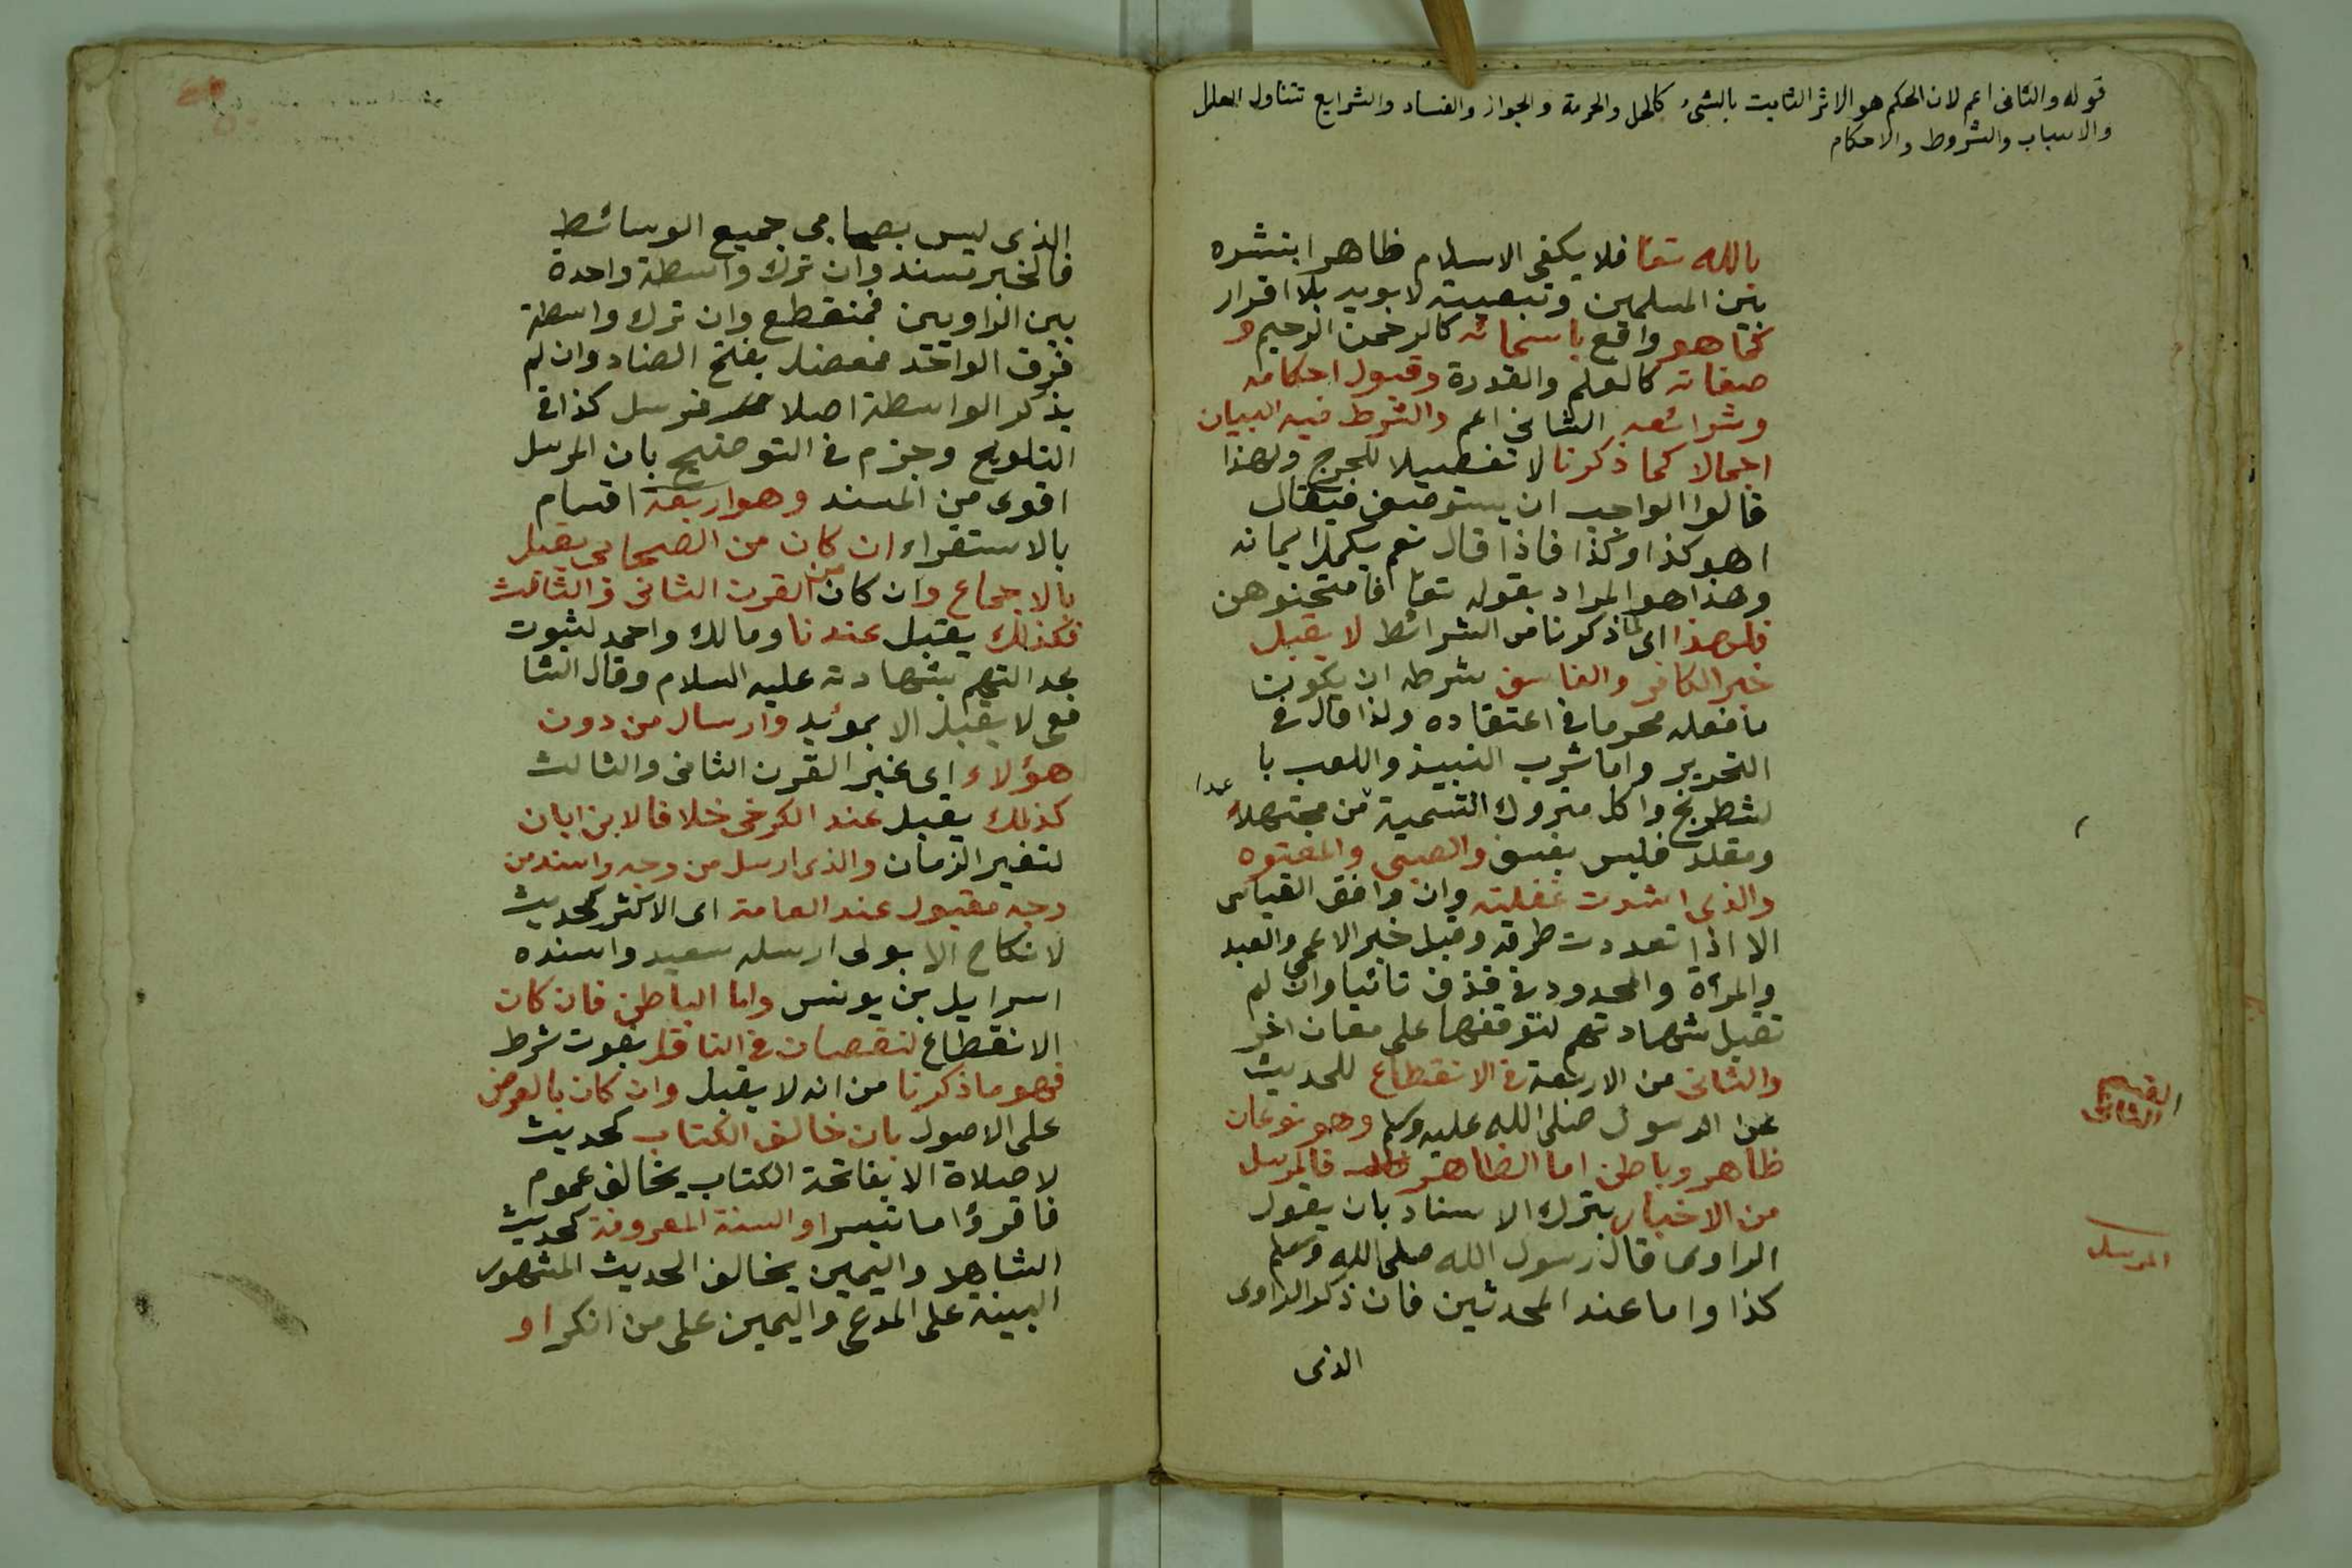 قوله والثانى اعم لان الحكم هو الاثر الثابت بالشئ كالحل والحرمة والجواز والفساد والشرايع تتناول العلل
والاسباب والشروط والاحكام
بالله تعا فلا يكفى الاسلام ظاهرا بنشوه
بين المسلمين وتبعيته لابويه بلا اقرار
كما هو واقع باسمائه كالرحمن الرحيم و
صفاته كالعلم والقدرة وقبول احكامه
وشرائعه الثانى اعم والشرط فيه البيان
اجمالا كما ذكرنا لا تفصيلا للحرج ولهذا
قالوا الواجب ان يستوصف فيقال
اهو كذا وكذا فاذا قال نعم يكمل ايمانه
وهذا هو المراد بقوله تعا فامتحنوهن
فلهذا اى لما ذكرنا من الشرائط لا يقبل
خبر الكافر والفاسق شرطه ان يكون
ما فعله محرما فى اعتقاده ولذا قال فى
التحرير واما شرب النبيذ واللعب با
لشطرنج واكل متروك التسمية عمدا من مجتهد
ومقلد فليس بفسق والصبى والمعتوه
والذى اشدت غفلته وان وافق القياس
الا اذا تعددت طرقه وقبل خبر الاعمى والعبد
والمرأة والمحدود فى قذف تائبا وان لم
تقبل شهادتهم لتوقفها على معان اخر
والثانى من الاربعة فى الانقطاع للحديث
عن الرسول صلى الله عليه وسلم وهو نوعان
ظاهر وباطن اما الظاهر فالمرسل
من الاخبار بترك الاسناد بان يقول
الراوى قال رسول الله صلى الله وسلم
كذا واما عند المحدثين فان ذكر الراوى
الذى
القسم
الثانى
المرسل
الذى ليس بصحابى جميع الوسائط
فالخبر مسند وان ترك واسطة واحدة
بين الراويين فمنقطع وان ترك واسطة
فوق الواحد فمعضل بفتح الضاد وان لم
يذكر الواسطة اصلا فمرسل كذا فى
التلويح وجزم فى التوضيح بان المرسل
اقوى من المسند وهو اربعة اقسام
بالاستقراء ان كان من الصحابى يقبل
بالاجماع وان كان من القرن الثانى والثالث
فكذلك يقبل عندنا ومالك واحمد لثبوت
عدالتهم بشهادته عليه السلام وقال الشا
فعى لا يقبل الا بمؤيد وارسال من دون
هؤلاء اى غير القرن الثانى والثالث
كذلك يقبل عند الكرخى خلافا لابن ابان
لتغير الزمان والذى ارسل من وجه واسند من
وجه مقبول عند العامة اى الاكثر كحديث
لا نكاح الا بولى ارسله سعيد واسنده
اسرايل بن يونس واما الباطن فان كان
الانقطاع لنقصان فى الناقل بفوت شرط
فهو ما ذكرنا من انه لا يقبل وان كان بالعرض
على الاصول بان خالف الكتاب كحديث
لا صلاة الا بفاتحة الكتاب يخالف عموم
فاقرؤا ما تيسر او السنة المعروفة كحديث
الشاهد واليمين يخالف الحديث المشهور
البينة على المدعى واليمين على من انكر او